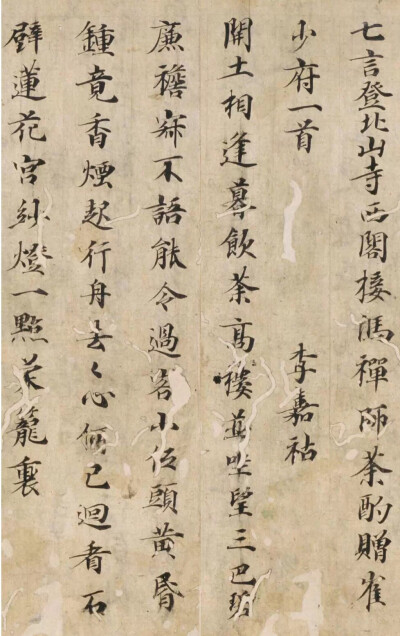 七言登北山寺西閣接馮禪師茶酌贈崔
少府一首 李嘉祐
開士相逢暮飲茶高樓並坐望三巴
廉襜寂不語能令過客小低頭黃昏
鍾竟香煙起行舟去々心何已迴看石
壁蓮花宮紗燈一點籠裏